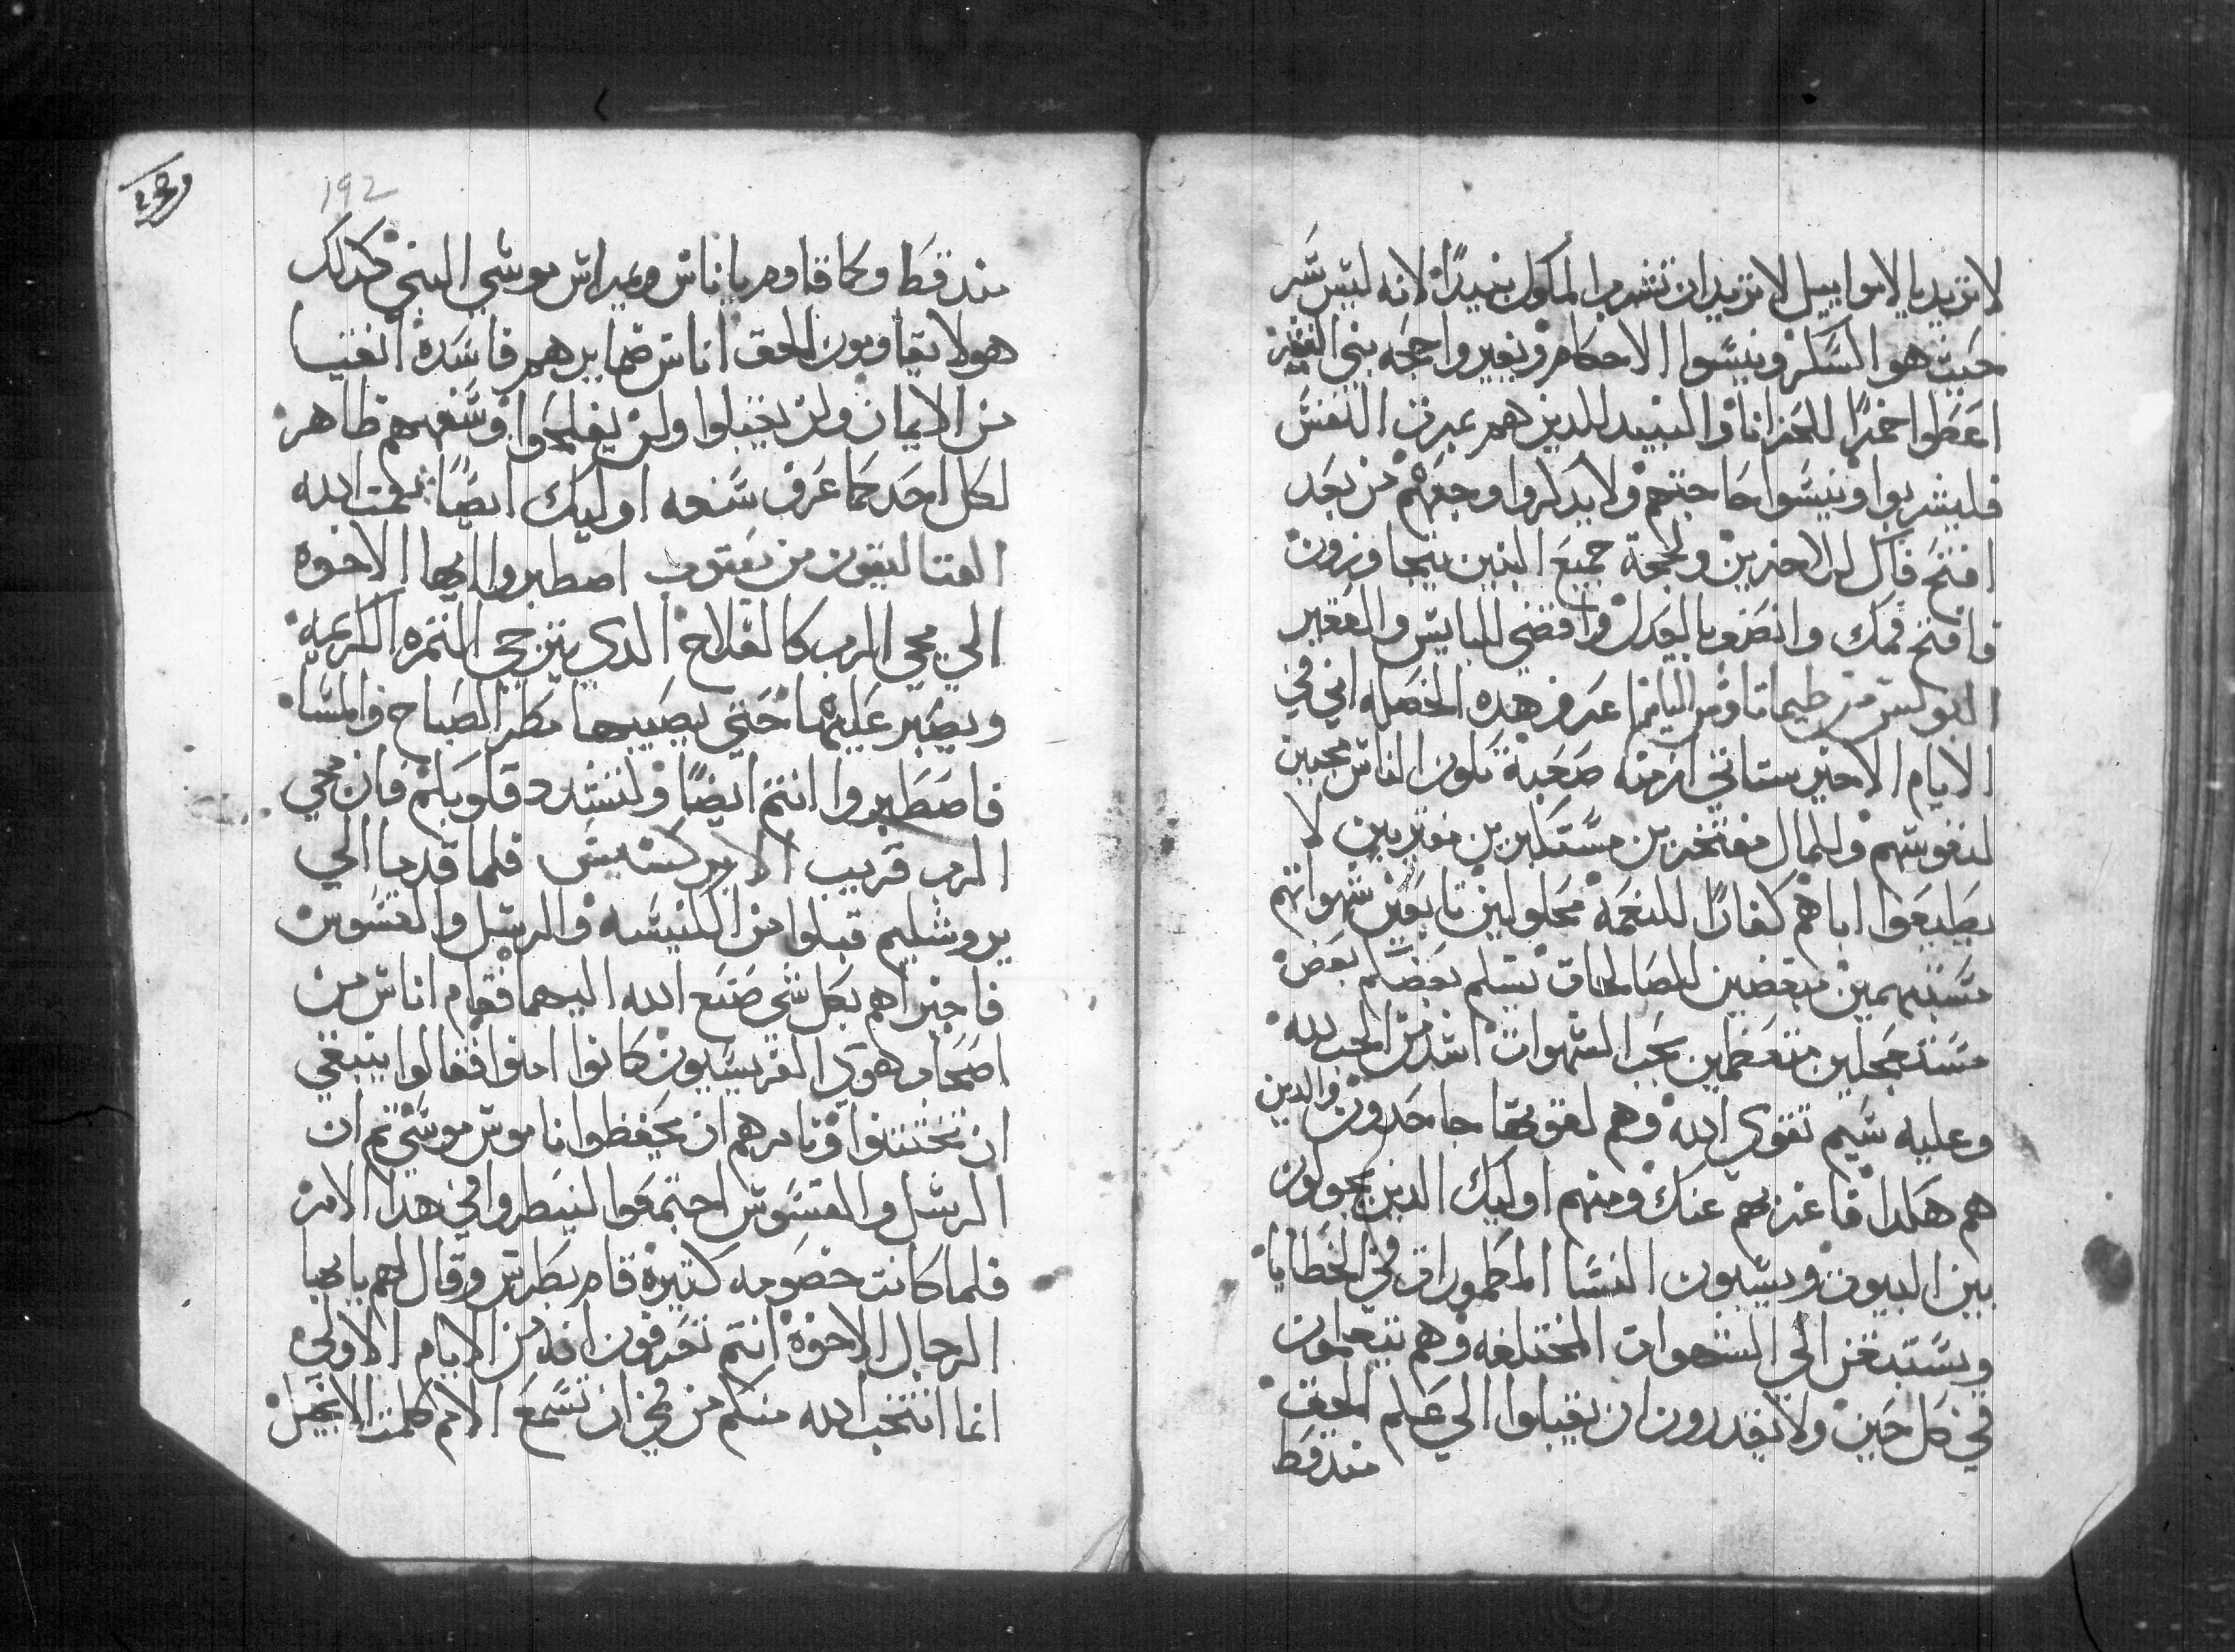 لا تريد يا لاموابيل لا تريد ان تشرب الملوك نبيدًا لانه ليس سر
حيت هو السكر وينسوا الاحكام ويغيروا حجه بني الفقير
اعطوا خمرًا للحزانا والنبيد للدين هم بمرت النفس
فليشربوا وينسوا حاجتهم ولا يدكروا وجعهم من بعد
افتح فاك للاخرين ولحجة جميع البنين يتجاوزون
فافتح فمك وانضف بالعدل واقضي للبايس والفقير
البولس من طيماتاوس التانيه اعرف هده الخصله اني في
الايام الاخير ستاتي ازمنه صعبة تكون الناس محبين
لنفوسهم والمال مفتخرين مستكبرين مفترين لا
يطيعوا اباهم كفارًا للنعمة محلولين تابعين شهواتهم
مستنهمين مبغضين للصالحات تسلم بعضكم بعض
مستعجلين متعظمين بحب الشهوات اشد من الحب لله
وعليه شيم تقوى الله وهم لقوتها جاحدون والدين
هم هكدا فاعزبهم عنك ومنهم اوليك الدين يجولون
بين البيوت ويسبون النسا المطمورات في الخطايا
ويستبدغن الي الشهوات المختلفه وهم يتعلمون
في كل حين ولا يقدرون ان يقبلوا الي علم الحق
مند قط
192
مند قط وكما قاوم ياناس ويمبراس موسي النبي كدلك
هولا يقاومون الحق اناس ضمايرهم فاسده انفيا
من الايمان ولن يقبلوا ولن يفلحوا وسفههم ظاهر
لكل احد كما عرف سفه اوليك ايضًا نعمت الله
القتاليقون من يعقوب اصطبروا ايها الاخوه
الي مجي الرب كالفلاح الدي يترجي التمره الكريمه
ويصبر عليها حتي يصيبها مطر الصباح والمسا
فاصطبروا انتم ايضًا ولتشدد قلوبكم فان مجي
الرب قريب الابركسيس فلما قدما الي
يروشليم قبلوا من الكنيسه والرسل والقسوس
فاخبراهم بكل شي صنع الله اليهما فقام اناس من
اصحاب هوي الفريسيون كانوا امنوا فقالوا ينبغي
ان تختتنوا وتامرهم ان يحفظوا ناموس موسي تم ان
الرسل والقسوس اجتمعوا لينظروا في هدا الامر
فلما كانت خصومه كتيرة قام بطرس وقال لهم يا ايها
الرجال الاخوة انتم تعرفون انه من الايام الاولي
انما انتخب الله منكم من في ان تسمع الامم كلمت الانجيل